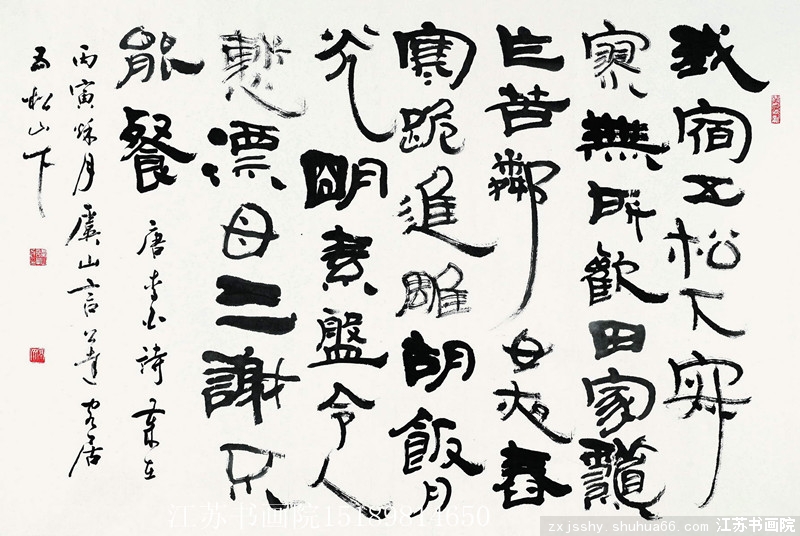 我宿五松下宋
寥無所歡田家龝
乍苦鄰女夜舂
寒跪進雕胡飯月
光明素盤令人
慙漂母三謝不
能餐 唐李白詩
丙寅秋月虞山言公達客居
五松山下
江苏书画院15189814650
zxjsshy.shuhua66.com 江苏书画院